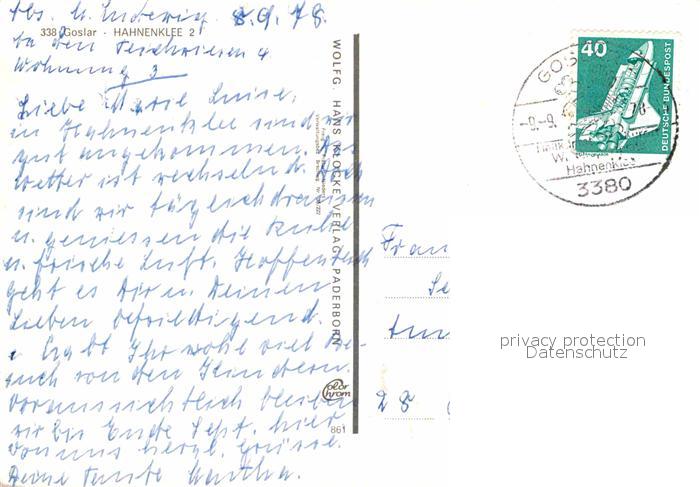 Abs. U. Ludwig. 8.9.78.
338 Goslar · HAHNENKLEE 2
In den Teichwiesen 4
Wohnung 3
Liebe Marie Luise,
in Hahnenklee sind wir
gut angekommen. Das
Wetter ist wechselnd. Doch
sind wir täglich draussen
u. geniessen die Ruhe
u. frische Luft. Hoffentlich
geht es Dir u. Deinen
Lieben befriedigend.
Habt Ihr wohl viel Be-
such von den Kindern.
Voraussichtlich bleiben
wir bis Ende Sept. hier
Von uns herzl. Grüsse.
Deine Tante Martha.
WOLFG. HANS KLOCKE VERLAG · PADERBORN
color chrom
861
40
DEUTSCHE BUNDESPOST
GOS
-9.-9. 78
W.
Hahnenklee
3380
Frau
28
privacy protection
Datenschutz